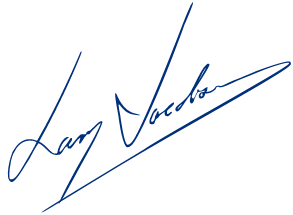 Larry Jacobson